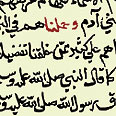 بني آدم وحملناهم في البر
هم على كثير ممن خلقنا تفضيلا
كما قال النبي صلى الله عليه وسلم
رسول الله صلى الله عليه و